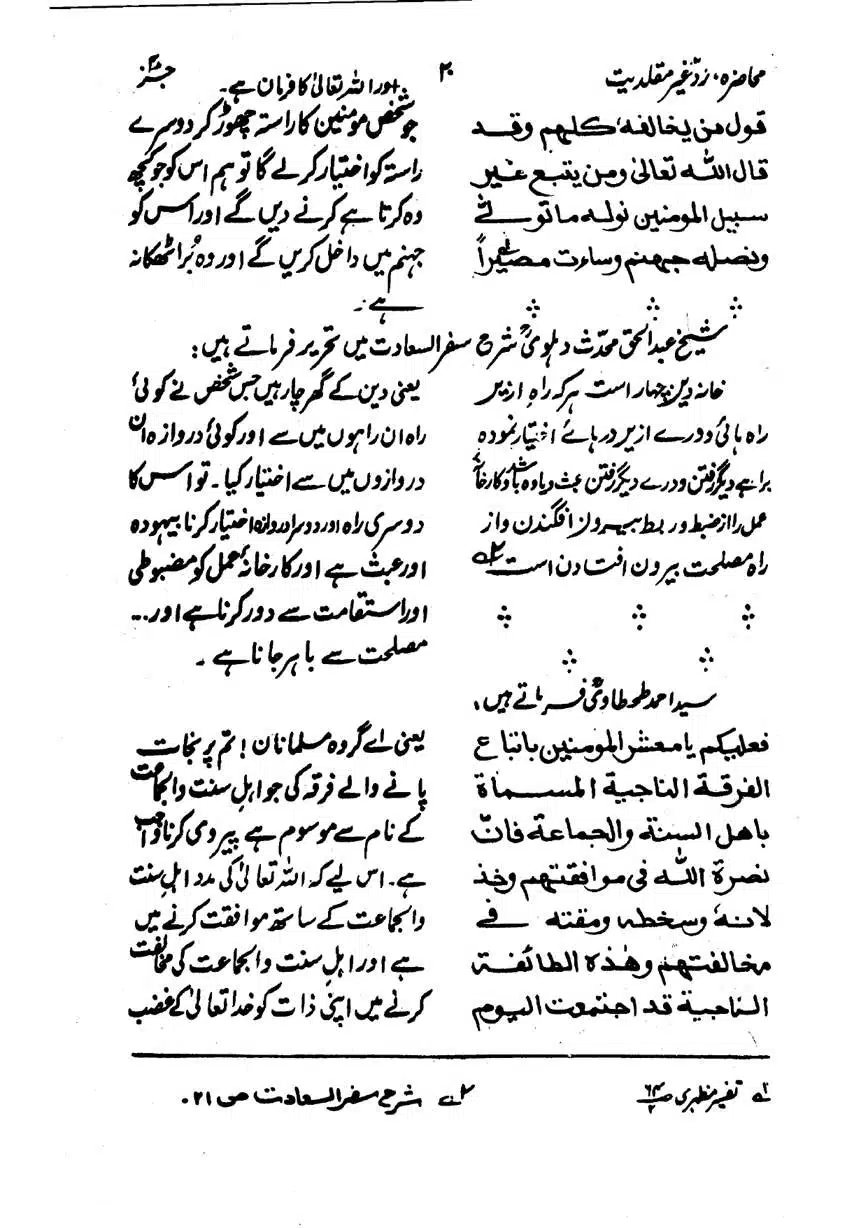 محاضرہ، ردّ غیر مقلدیت
۲۰
اور اللہ تعالیٰ کا فرمان ہے۔
قول من یخالفہ کلہم وقد
قال اللہ تعالیٰ ومن یتبع غیر
سبیل المومنین نولہ ما تولیٰ
ونصلہ جہنم وساءت مصیراً
جو شخص مومنین کا راستہ چھوڑ کر دوسرے
راستہ کو اختیار کرلے گا تو ہم اس کو جو کچھ
وہ کرتا ہے کرنے دیں گے اور اس کو
جہنم میں داخل کریں گے اور وہ بُرا ٹھکانہ
ہے۔
شیخ عبدالحق محدّث دہلویؒ شرح سفر السعادت میں تحریر فرماتے ہیں:
خانہ دین چہار است ہر کہ راہِ ازیں
راہ ہائی و درے ازیں درہائے اختیار نمودہ
براہے دیگر رفتن و درے دیگر گرفتن عبث و یاوہ باشد و کارخانۂ
عمل را از ضبط و ربط بیرون افگندن و از
راہ مصلحت بیرون افتادن است ۲ے
یعنی دین کے گھر چار ہیں جس شخص نے کوئی
راہ ان راہوں میں سے اور کوئی دروازہ ان
دروازوں میں سے اختیار کیا۔ تو اس کا
دوسری راہ اور دوسرا دروازہ اختیار کرنا بیہودہ
اور عبث ہے اور کارخانۂ عمل کو مضبوطی
اور استقامت سے دور کرنا ہے اور...
مصلحت سے باہر جانا ہے۔
سید احمد طحطاویؒ فرماتے ہیں:
فعلیکم یا معشر المومنین باتباع
الفرقۃ الناجیۃ المسماۃ
باھل السنۃ والجماعۃ فانّ
نصرۃ اللہ فی موافقتہم وخذ
لانہٗ وسخطہ ومقتہ فی
مخالفتہم وھٰذہ الطائفۃ
الناجیۃ قد اجتمعت الیوم
یعنی اے گروہ مسلمانان! تم پر نجات
پانے والے فرقہ کی جو اہلِ سنت والجماعت
کے نام سے موسوم ہے پیروی کرنا واجب
ہے۔ اس لیے کہ اللہ تعالیٰ کی مدد اہلِ سنت
والجماعت کے ساتھ موافقت کرنے میں
ہے اور اہلِ سنت والجماعت کی مخالفت
کرنے میں اپنی ذات کو خدا تعالیٰ کے غضب
۱ے تفسیر مظہری ص ۶۴/۲
۲ے شرح سفر السعادت ص ۲۱۔